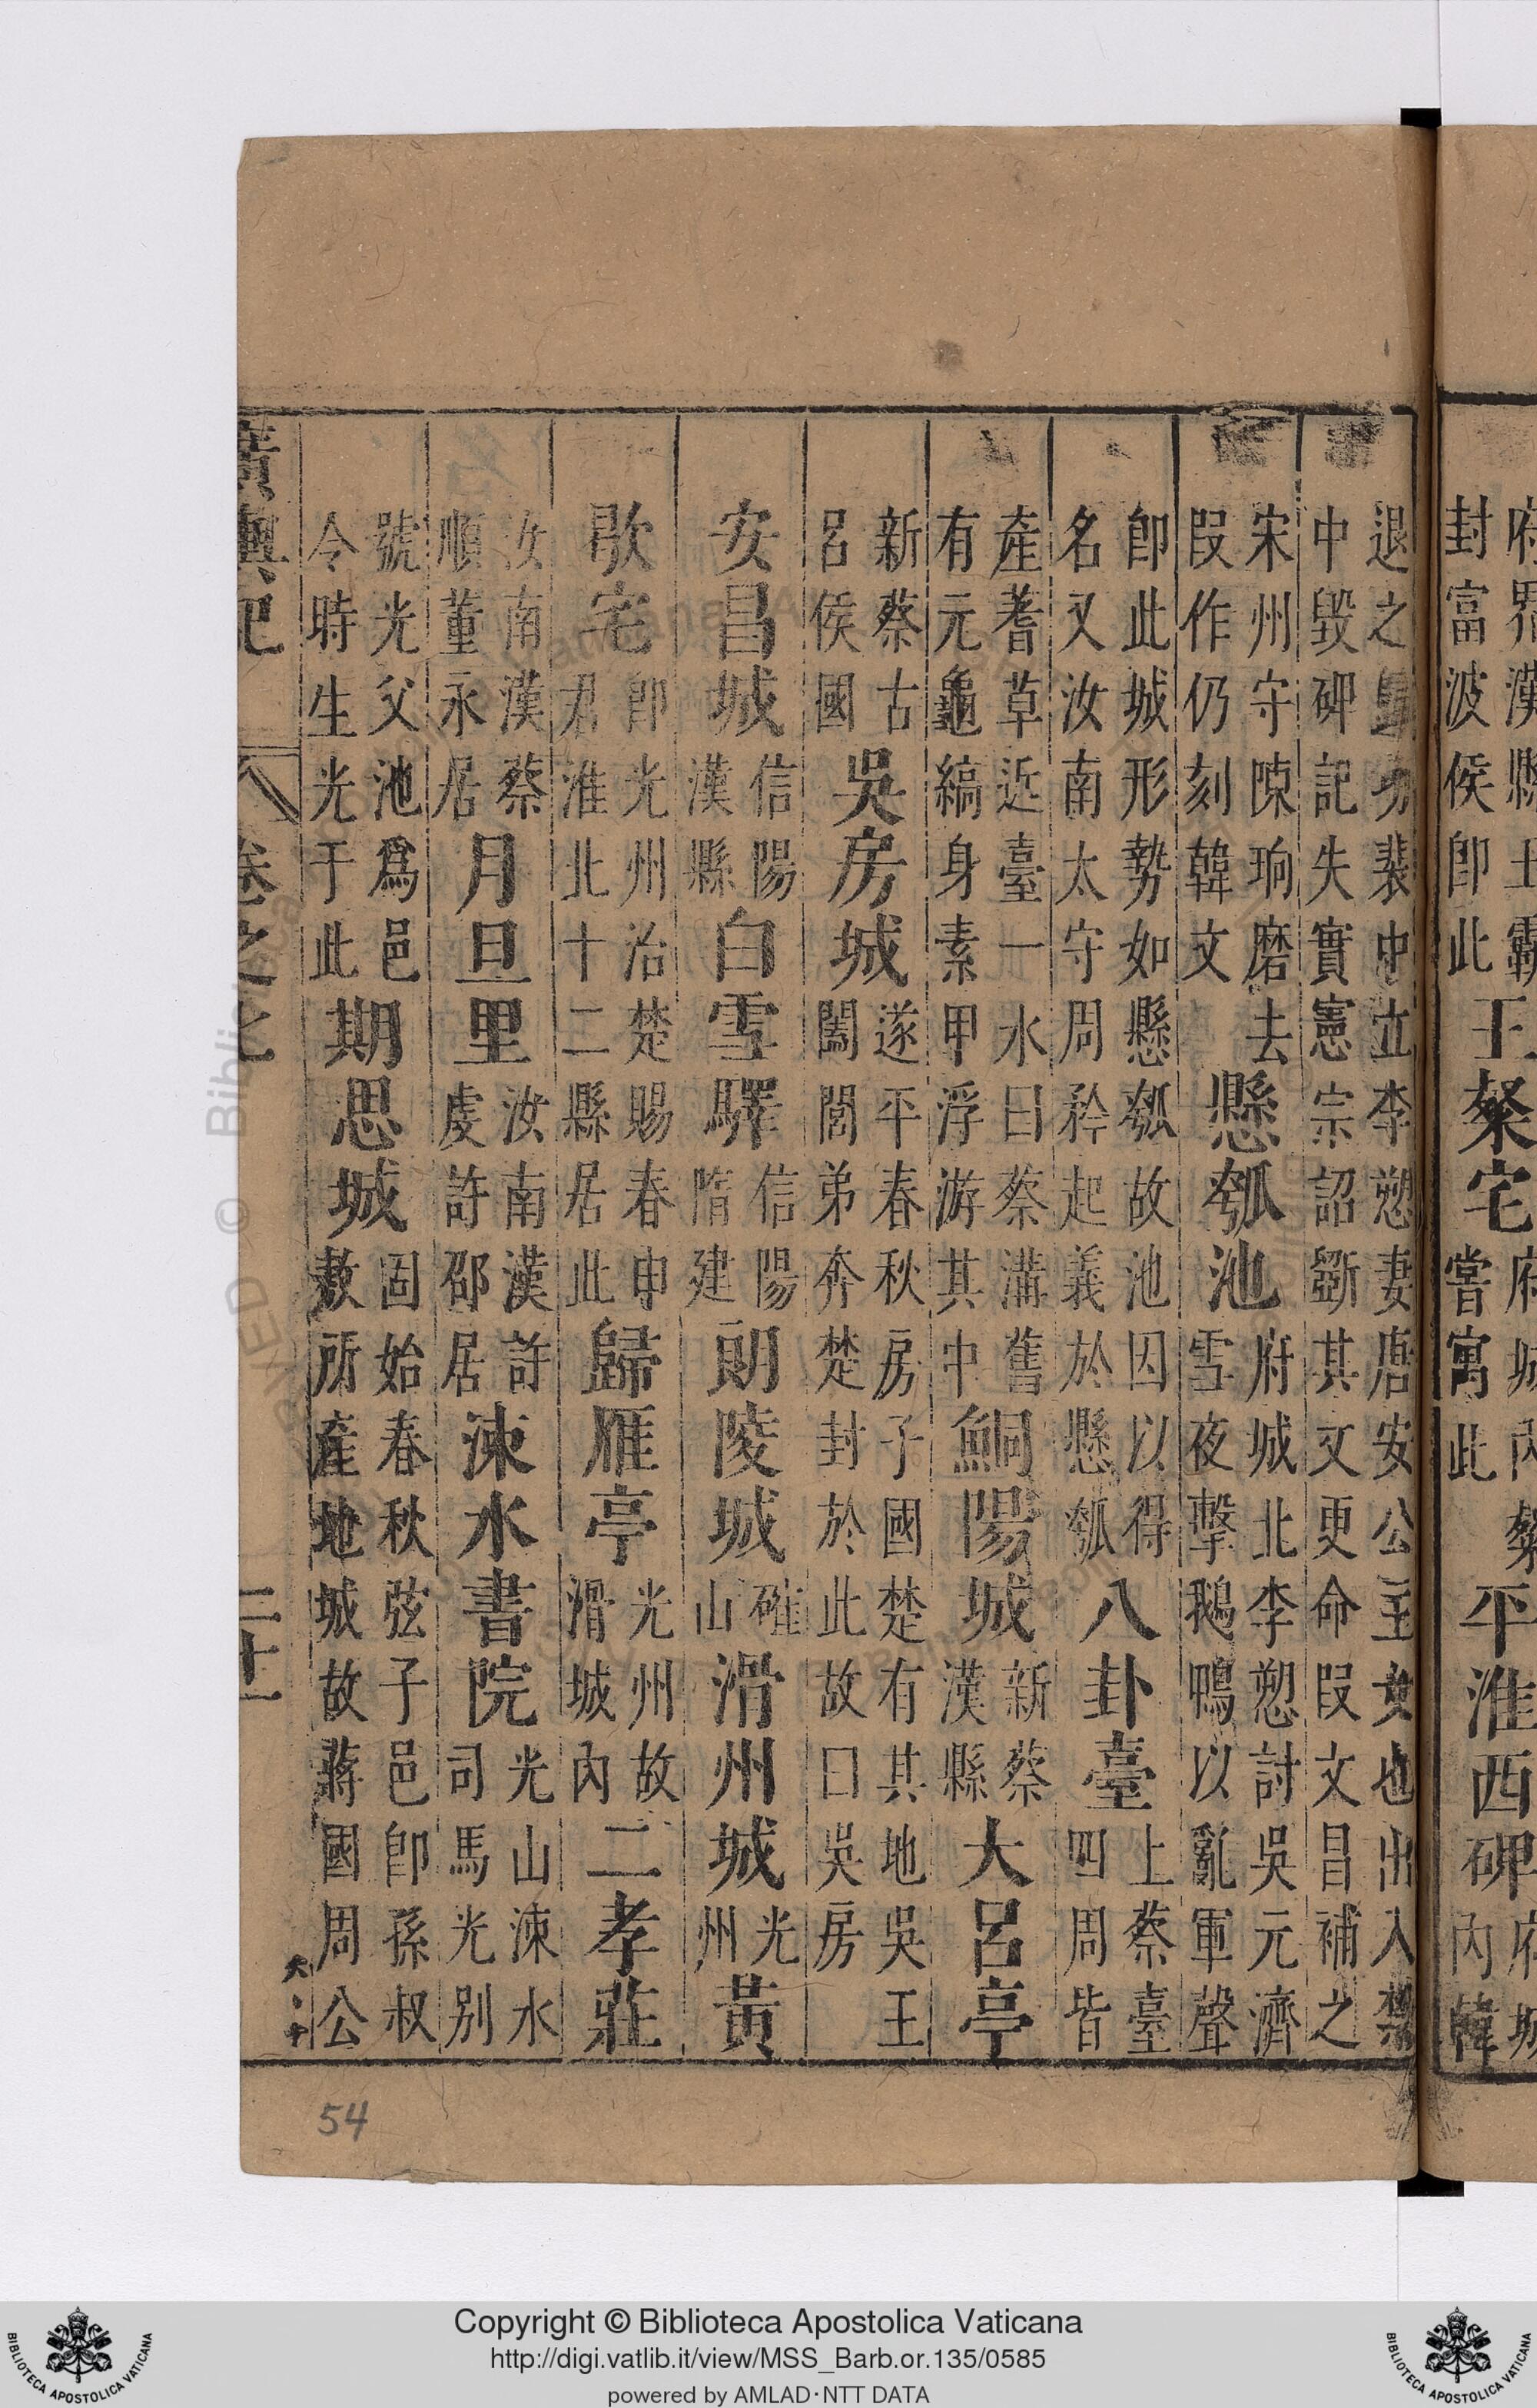 府界漢縣土霸
封富波侯卽此
王粲宅
府城內粲
嘗寓此
平淮西碑
府城
內韓
退之歸功裴中立李愬妻唐安公主女也出入禁
中毀碑記失實憲宗詔斵其文更命叚文昌補之
宋州守陳珦磨去
叚作仍刻韓文
懸瓠池
府城北李愬討吳元濟
雪夜擊鵝鴨以亂軍聲
卽此城形勢如懸瓠故池因以得
名又汝南太守周矜起義於懸瓠
八卦臺
上蔡臺
四周皆
產蓍草近臺一水曰蔡溝舊
有元龜縞身素甲浮游其中
鮦陽城
新蔡
漢縣
大呂亭
新蔡古
呂侯國
吳房城
遂平春秋房子國楚有其地吳王
闔閭弟奔楚封於此故曰吳房
安昌城
信陽
漢縣
白雪驛
信陽
隋建
朗陵城
確
山
滑州城
光
州
黃
歇宅
卽光州治楚賜春申
君淮北十二縣居此
歸雁亭
光州故
滑城內
二孝莊
汝南漢蔡
順董永居
月旦里
汝南漢許
虔許邵居
涑水書院
光山涑水
司馬光別
號光父池爲邑
令時生光于此
期思城
固始春秋弦子邑卽孫叔
敖所產地城故蔣國周公
廣輿記
卷之七
二十一
54
© Biblioteca Apostolica Vaticana
Copyright © Biblioteca Apostolica Vaticana
http://digi.vatlib.it/view/MSS_Barb.or.135/0585
powered by AMLAD·NTT DATA
BIBLIOTECA APOSTOLICA VATICANA
BIBLIOTECA APOSTOLICA VATICANA